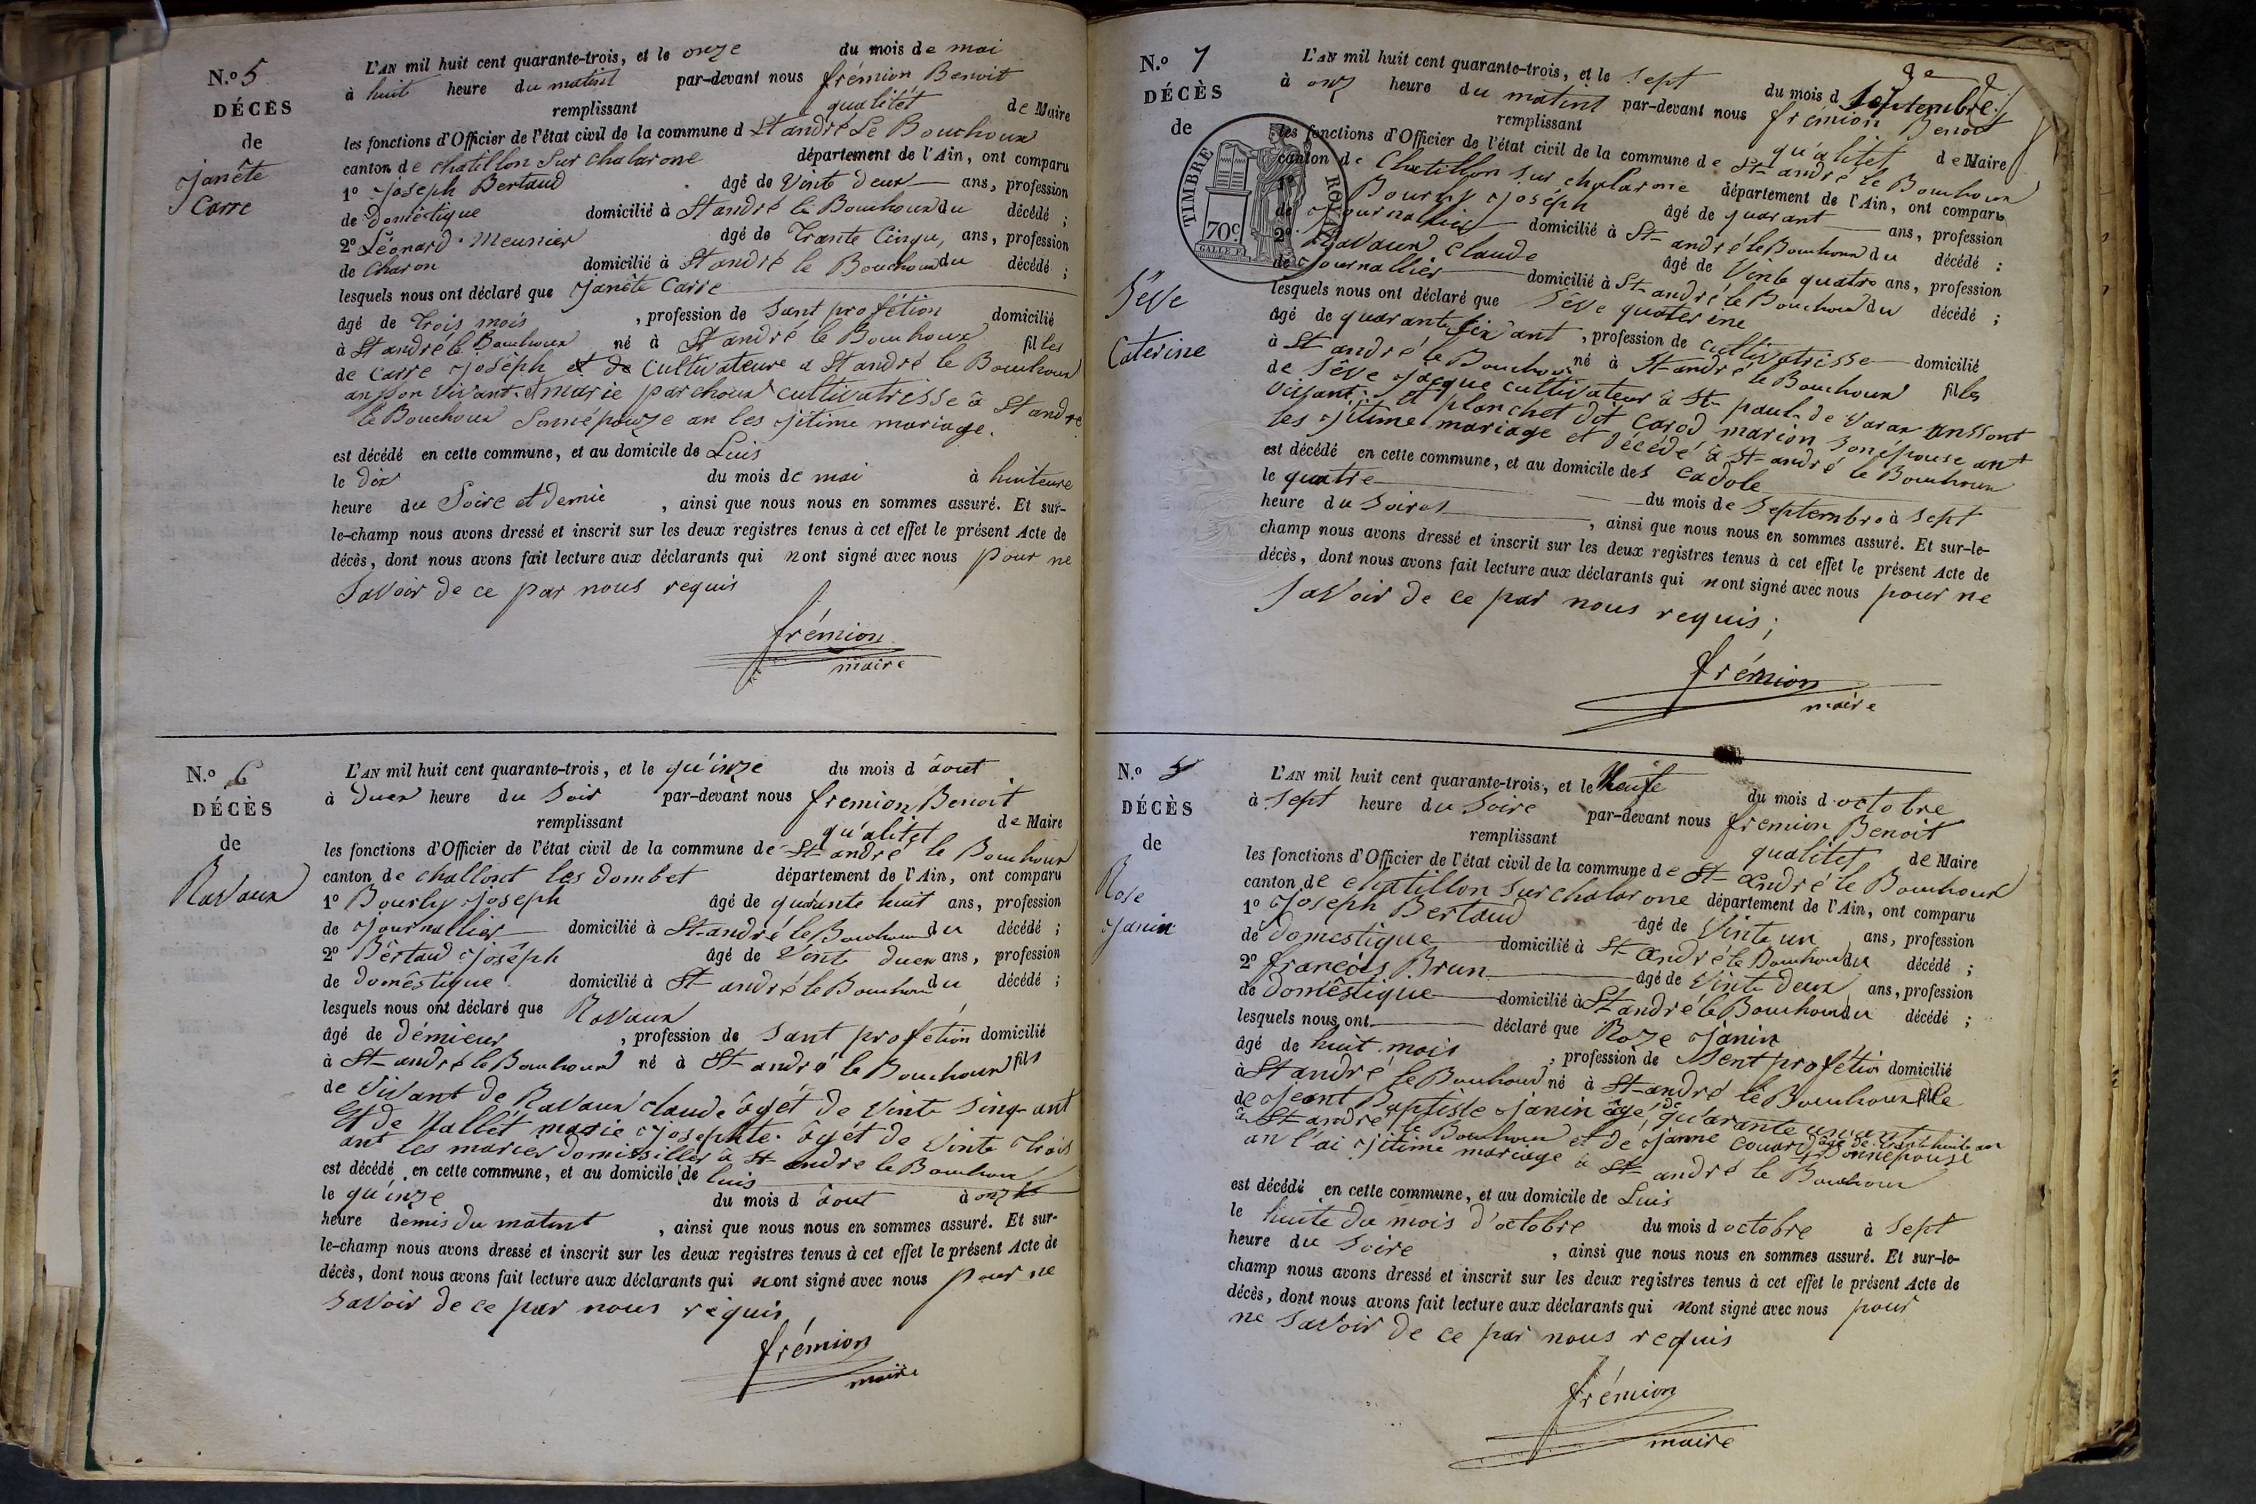 N.o 5
DÉCÈS
de
Janête
Carre
L'AN mil huit cent quarante-trois, et le onze du mois de mai
à huit heure du matint par-devant nous frémion Benoit
remplissant qualitét de Maire
les fonctions d'Officier de l'état civil de la commune d St andré Le Bouchoux
canton de chatillon Sur chalarone département de l'Ain, ont comparu
1o Joseph Bertaud âgé de Vinte deux ans, profession
de domêstique domicilié à St andré le Bouchoux du décédé ;
2o Léonard Meunier âgé de Trante Cinque, ans, profession
de Charon domicilié à St andré le Bouchoux du décédé ;
lesquels nous ont déclaré que Janête Carre
âgé de Trois mois , profession de Sant profétion domicilié
à St andré le Bouchoux né à St andré le Bouchoux filles
de Carre Joséph et de Cultivateure a St andré le Bouchoux
Vivant et marie parchoux cultivatrisse à St andré
le Bouchoux an les jitime mariage.
est décédé en cette commune, et au domicile de Luis
le dix du mois de mai à huiteure
heure du Soire et demie , ainsi que nous nous en sommes assuré. Et sur-
le-champ nous avons dressé et inscrit sur les deux registres tenus à cet effet le présent Acte de
décès, dont nous avons fait lecture aux déclarants qui nont signé avec nous pour ne
Savoir de ce par nous requis
frémion
maire
N.o 6
DÉCÈS
de
Ravaux
L'AN mil huit cent quarante-trois, et le qu'inze du mois d àout
à duex heure du Soir par-devant nous fremion Benoit
remplissant qu'alitet de Maire
les fonctions d'Officier de l'état civil de la commune de St andré le Bouchoux
canton de challont les dombet département de l'Ain, ont comparu
1o Bourly Joseph âgé de quarante huit ans, profession
de Journallier domicilié à St-andré le Bouchoux du décédé ;
2o Bêrtaud Joséph âgé de Vinte duex ans, profession
de domêstique domicilié à St andré le Bouchoux du décédé ;
lesquels nous ont déclaré que Ravaux
âgé de démieur , profession de Sant profétion domicilié
à St-andré le Bouchoux né à St-andré le Bouchoux fils
de Vivant de Ravaux claude àgét de Vinte Sinq ant
Et de Nallét marie josephte àgét de Vinte Trois
ant les mariés domissilles à St andre le Bouchoux
est décédé en cette commune, et au domicile de luis
le qu'inze du mois d àout à onze
heure demis du matint , ainsi que nous nous en sommes assuré. Et sur-
le-champ nous avons dressé et inscrit sur les deux registres tenus à cet effet le présent Acte de
décès, dont nous avons fait lecture aux déclarants qui nont signé avec nous pour ne
Savoir de ce par nous requis
frémion
maire
N.o 7
DÉCÈS
de
Sêve
Caterine
TIMBRE ROYAL
70c
L'AN mil huit cent quarante-trois, et le Sept du mois d Septembre
à onz heure du matint par-devant nous frémion Benoit
remplissant qu'alitet de Maire
les fonctions d'Officier de l'état civil de la commune de St-andré le Bouchoux
canton de Chatillon Sur chalarone département de l'Ain, ont comparu
1o Bourly Joséph âgé de quarant ans, profession
de Journallier domicilié à St-andré le Bouchoux du décédé ;
2o Ravaux Claude âgé de Vinte quatre ans, profession
de Journallier domicilié à St-andré le Bouchoux du décédé ;
lesquels nous ont déclaré que Sêve quaterine
âgé de quarante Six ant , profession de cultivatrisse domicilié
à St andré le Bouchoux né à St-andré le Bouchoux filles
de Sêve Jacque cultivateur à St-paul de Varax
Vivant et planchet dit Carod marion Son épouse ant
les jitime mariage et décédé à St-andré le Bouchoux
est décédé en cette commune, et au domicile des Cadole
le quatre du mois de Septembre à Sept
heure du Soires , ainsi que nous nous en sommes assuré. Et sur-le-
champ nous avons dressé et inscrit sur les deux registres tenus à cet effet le présent Acte de
décès, dont nous avons fait lecture aux déclarants qui nont signé avec nous pour ne
Savoir de ce par nous requis ;
frémion
maire
N.o
DÉCÈS
de
Rose
Janin
L'AN mil huit cent quarante-trois, et le du mois d octobre
à Sept heure du Soire par-devant nous fremion Benoit
remplissant qualitet de Maire
les fonctions d'Officier de l'état civil de la commune de St andré le Bouchoux
canton de chatillon Sur chalarone département de l'Ain, ont comparu
1o Joseph Bertaud âgé de Vinte un ans, profession
de domestique domicilié à St andré le Bouchoux du décédé ;
2o françois Brun âgé de Vinte deux ans, profession
de domêstique domicilié à St andré le Bouchoux du décédé ;
lesquels nous ont déclaré que Roze Janin
âgé de huit mois , profession de Sent profétion domicilié
à St andré le Bouchoux né à St-andré le Bouchoux fille
de Jeant Baptiste Janin âgé de qu'arante
à St andré le Bouchoux et de Janne Couard
an l'ai jitime mariage à St andré le Bouchoux
est décédé en cette commune, et au domicile de Luis
le huite du mois d'octobre du mois d octobre à Sept
heure du Soire , ainsi que nous nous en sommes assuré. Et sur-le-
champ nous avons dressé et inscrit sur les deux registres tenus à cet effet le présent Acte de
décès, dont nous avons fait lecture aux déclarants qui nont signé avec nous pour
ne Savoir de ce par nous requis
frémion
maire